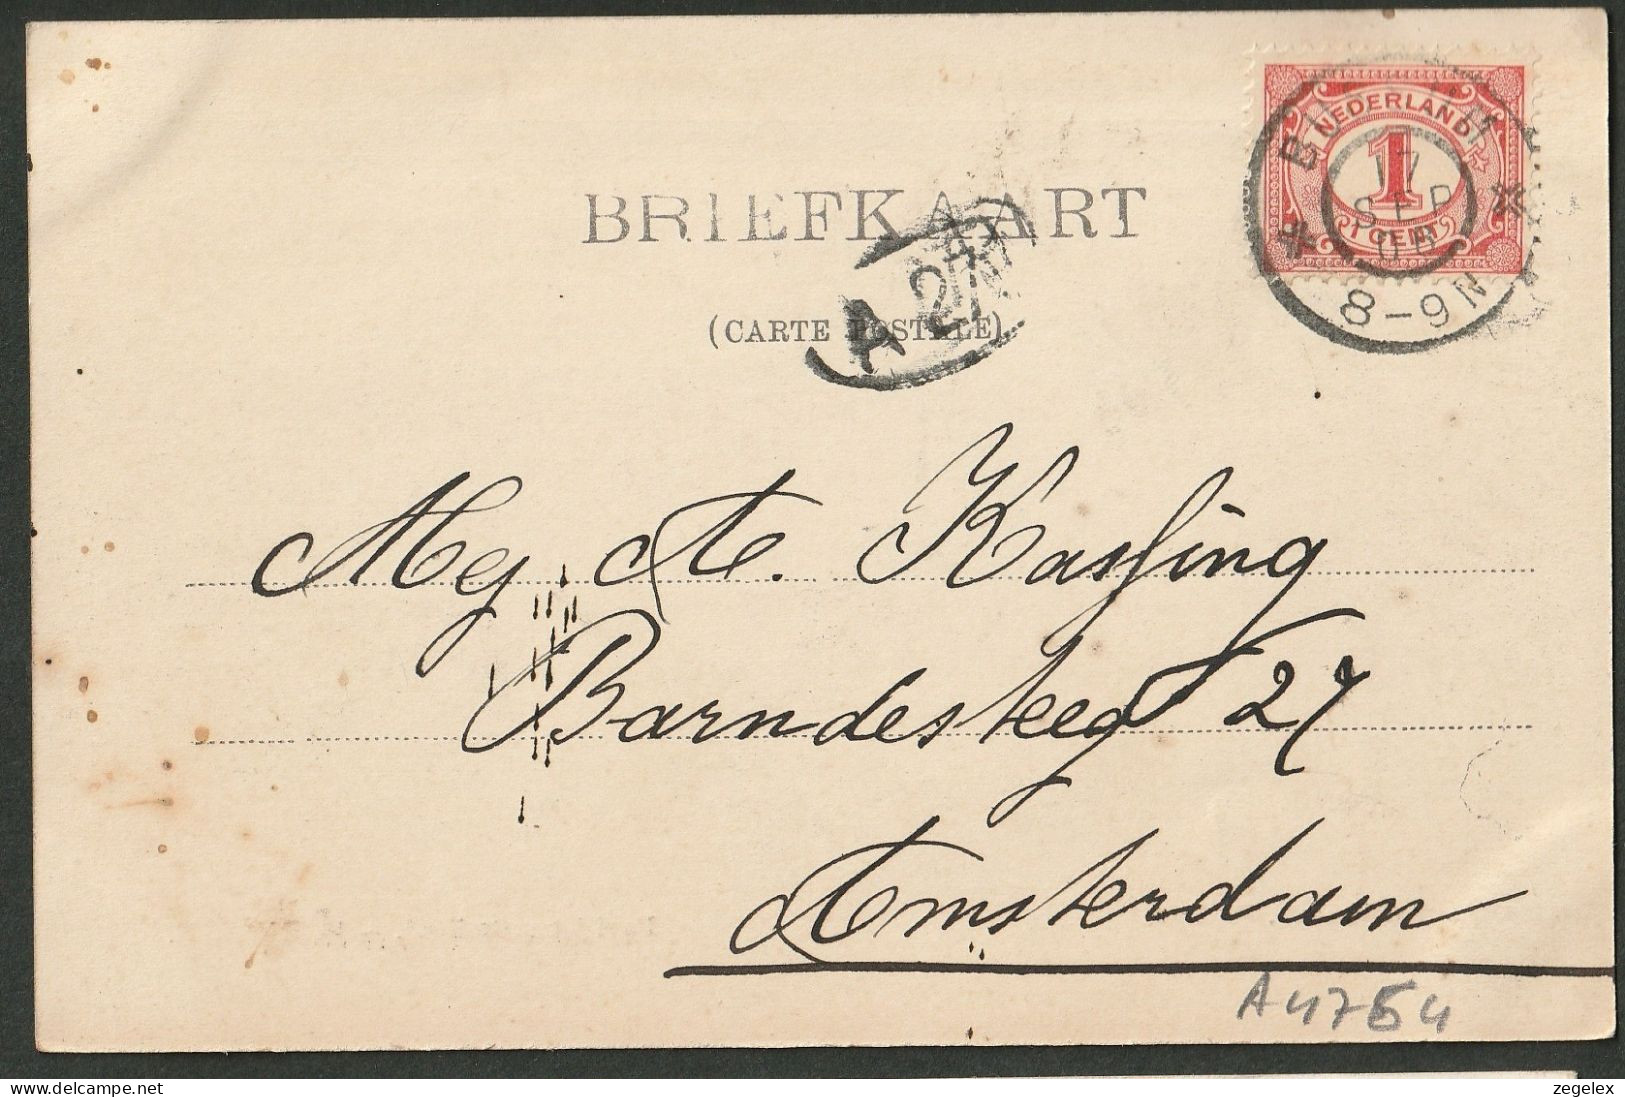 NEDERLAND
1
1 CENT
BUSSUM
17
SEP
8-9 N
BRIEFKAART
(CARTE POSTALE)
A 2
Mej. A. Kasfing
Barndesteeg 27
Amsterdam
A4754
delcampe.net
zegelex